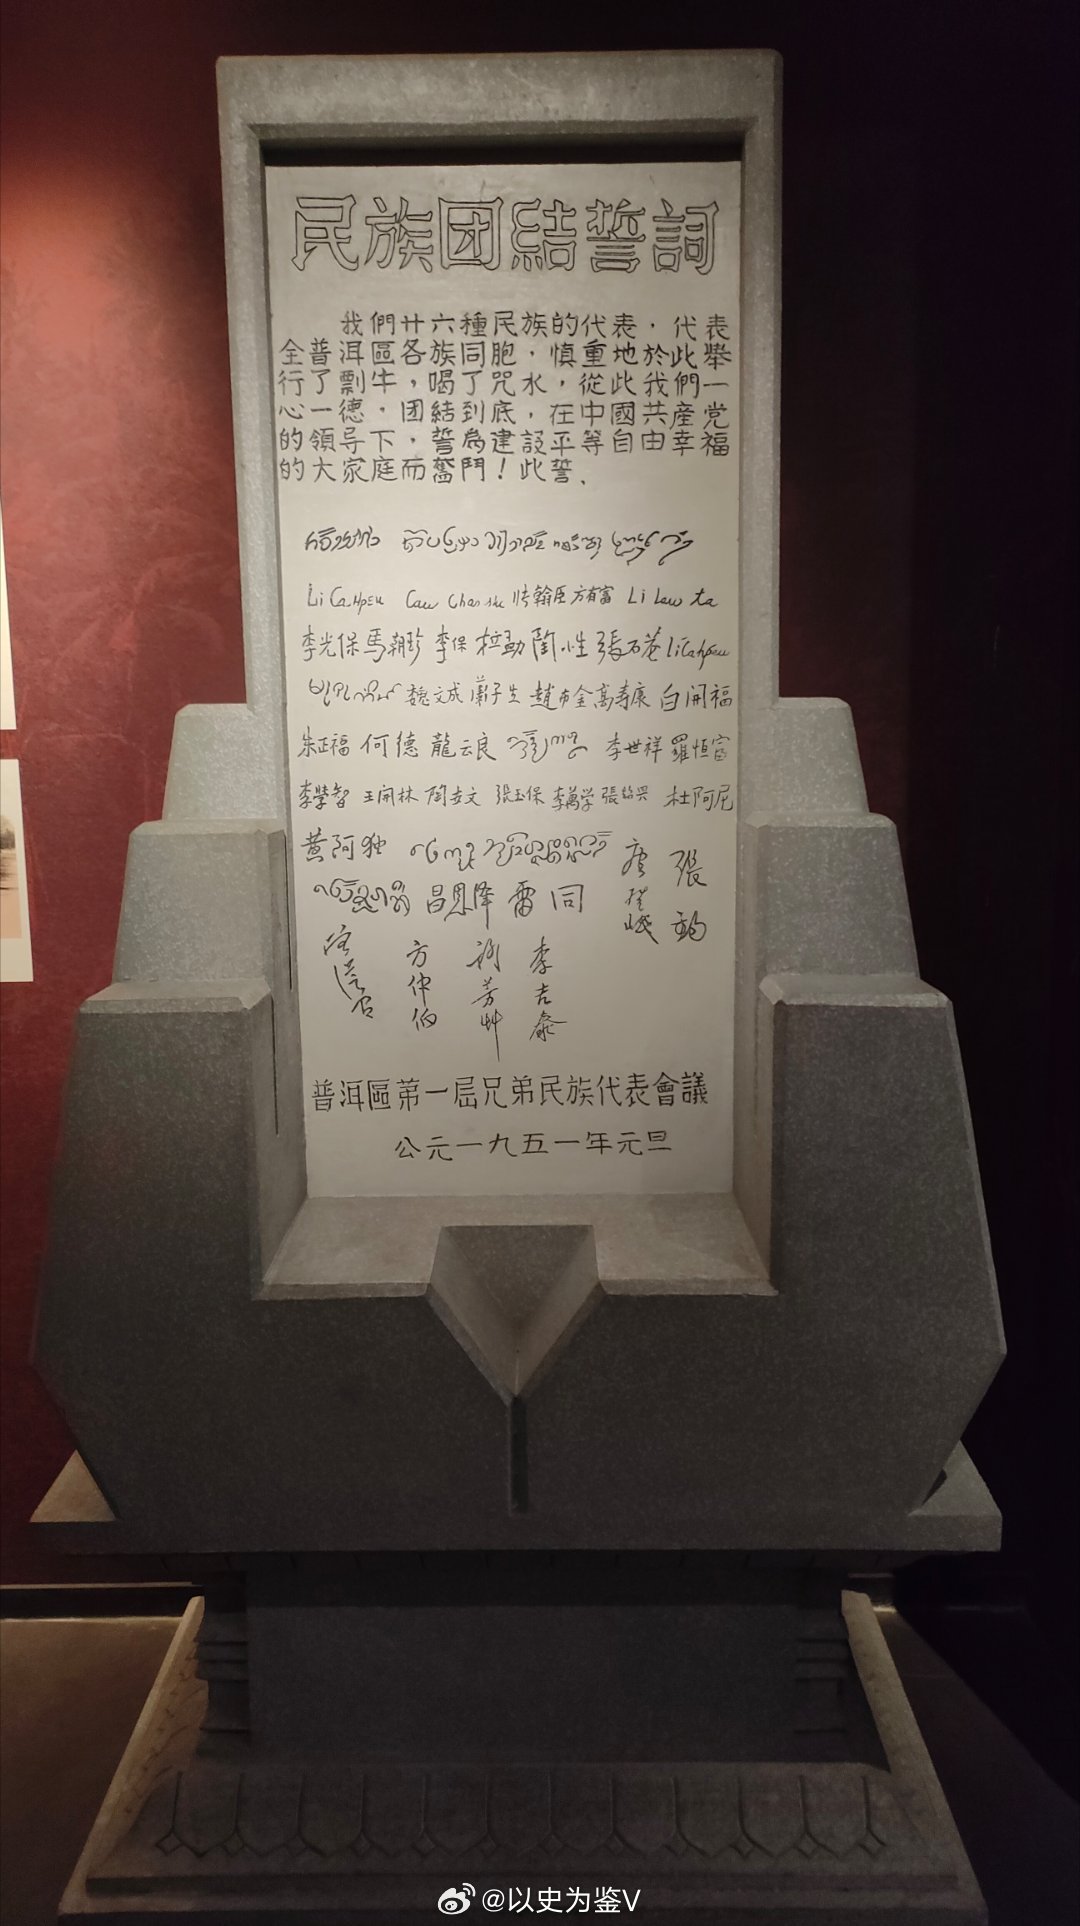 民族团結誓詞
我們廿六種民族的代表，代表
全普洱區各族同胞，慎重地於此舉
行了剽牛，喝了咒水，從此我們一
心一德，团結到底，在中國共産党
的領导下，誓為建設平等自由幸福
的大家庭而奮鬥！此誓．
Li CaHpeu 方有富 Li Law ta
李光保 馬朝珍 李保 拉勐 陶小性 張石菴 LiCahpeu
魏文成 蕭子生 趙布金 高寿康 白開福
朱正福 何德 龍云良 李世祥 羅恒富
李學智 王開林 陶世文 張玉保 李萬学 張紹興 杜阿尼
黄阿独
昌恩澤 雷同
唐登岷
張鈞
方仲伯
謝芳艸
李吉泰
普洱區第一屆兄弟民族代表會議
公元一九五一年元旦
@以史为鉴V